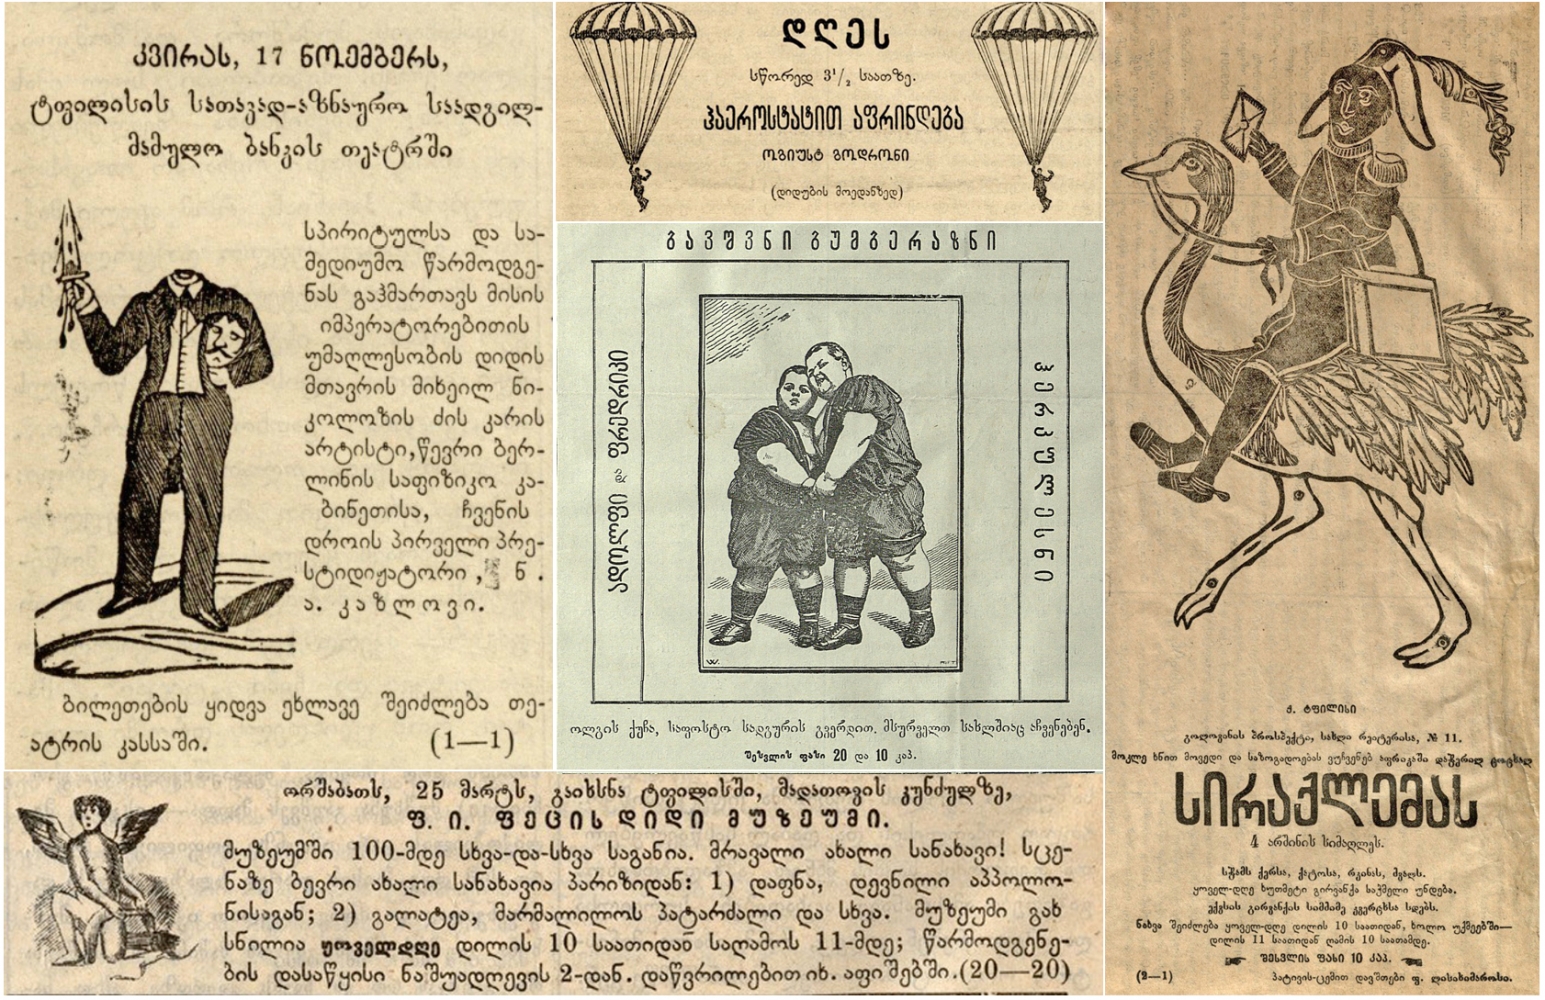 კვირას, 17 ნოემბერს,
ტფილისის სათავად-აზნაურო საადგილ-
მამულო ბანკის თეატრში
სპირიტულსა და სა-
მედიუმო წარმოდგე-
ნას გაჰმართავს მისის
იმპერატორებითის
უმაღლესობის დიდის
მთავრის მიხეილ ნი-
კოლოზის ძის კარის
არტისტი, წევრი ბერ-
ლინის საფიზიკო კა-
ბინეთისა, ჩვენის
დროის პირველი პრე-
სტიდიჟატორი, ნ.
ა. კაზლოვი.
ბილეთების ყიდვა ეხლავე შეიძლება თე-
ატრის კასსაში. (1—1)
დღეს
სწორედ 3½ საათზე.
ჰაეროსტატით აფრინდება
ოგიუსტ გოდრონი
(დიდუბის მოედანზედ)
გავშვნი გუმბერაზნი
ადოლფი და ფრედრიკი
ჰერკულესნი
ოლგის ქუჩა, საფოსტო სადგურის გვერდით. მსურველთ სახლშიაც აჩვენებენ.
შესვლის ფასი 20 და 10 კაპ.
ქ. ტფილისი
გოლოვინის პროსპექტი, სახლი რეიტერისა, № 11.
მოკლე ხნით მოვედი და საზოგადოებას ვუჩვენებ აფრიკაში დაჭერილ ცოცხალ
სირაქლემას
4 არშინის სიმაღლეს.
სჭამს ქერსა, ქატოსა, რკინას, მჟაღს.
ყოველ-დღე ხუთმეტი გირვანქა საჭმელი უნდება.
ექვსის გირვანქის სიმძიმე კვერცხსა სდებს.
ნახვა შეიძლება ყოველ-დღე დილის 10 საათიდან, ხოლო უქმეებში—
დილის 11 საათიდან ღამის 10 საათამდე.
შესვლის ფასი 10 კაპ.
(2—1) პატივის-ცემით დავშთები ფ.
ორშაბათს, 25 მარტს, გაიხსნა ტფილისში, მადათოვის კუნძულზე,
ფ. ი. ფეცის დიდი მუზეუმი.
მუზეუმში 100-მდე სხვა-და-სხვა საგანია. მრავალი ახალი სანახავი! სცე-
ნაზე ბევრი ახალი სანახავია პარიზიდან: 1) დაფნა, დევნილი აპპოლო-
ნისაგან; 2) გალატეა, მარმალილოს პატარძალი და სხვა. მუზეუმი გახ
სნილია ყოველდღე დილის 10 საათიდან საღამოს 11-მდე; წარმოდგენე-
ბის დასაწყისი ნაშუადღევის 2-დან. დაწვრილებით იხ. აფიშებში. (20—20)